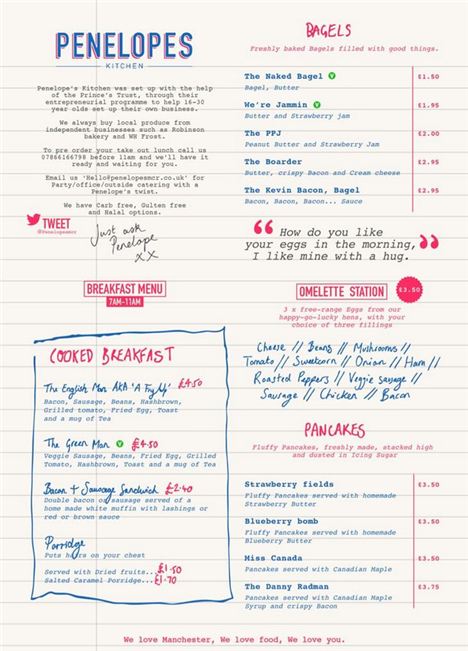 PENELOPES
KITCHEN
Penelope's Kitchen was set up with the help
of the Prince's Trust, through their
entrepreneurial programme to help 16-30
year olds set up their own business.
We always buy local produce from
independent businesses such as Robinson
bakery and WH Frost.
To pre order your take out lunch call us
07866166798 before 11am and we'll have it
ready and waiting for you.
Email us 'Hello@penelopesmcr.co.uk' for
Party/office/outside catering with a
Penelope's twist.
We have Carb free, Gulten free
and Halal options.
TWEET
@Penelopesmcr
Just ask
Penelope
xx
BAGELS
Freshly baked Bagels filled with good things.
The Naked Bagel V £1.50
Bagel, Butter
We're Jammin V £1.95
Butter and Strawberry jam
The PPJ £2.00
Peanut Butter and Strawberry Jam
The Boarder £2.95
Butter, crispy Bacon and Cream cheese
The Kevin Bacon, Bagel £2.95
Bacon, Bacon, Bacon... Sauce
“ How do you like
your eggs in the morning, ”
I like mine with a hug.
BREAKFAST MENU
7AM-11AM
COOKED BREAKFAST
The English Man AKA 'A Fry Up' £4.50
Bacon, Sausage, Beans, Hashbrown,
Grilled tomato, Fried Egg, Toast
and a mug of Tea
The Green Man V £4.50
Veggie Sausage, Beans, Fried Egg, Grilled
Tomato, Hashbrown, Toast and a mug of Tea
Bacon + Sausage Sandwich £2.40
Double bacon or sausage served of a
home made white muffin with lashings or
red or brown sauce
Porridge
Puts hairs on your chest
Served with Dried fruits...£1.50
Salted Caramel Porridge...£1.70
OMELETTE STATION £3.50
3 x free-range Eggs from our
happy-go-lucky hens, with your
choice of three fillings
Cheese // Beans // Mushrooms //
Tomato // Sweetcorn // Onion // Ham //
Roasted Peppers // Veggie sausage //
Sausage // Chicken // Bacon
PANCAKES
Fluffy Pancakes, freshly made, stacked high
and dusted in Icing Sugar
Strawberry fields £3.50
Fluffy Pancakes served with homemade
Strawberry Butter
Blueberry bomb £3.50
Fluffy Pancakes served with homemade
Blueberry Butter
Miss Canada £3.50
Pancakes served with Canadian Maple
The Danny Radman £3.75
Pancakes served with Canadian Maple
Syrup and crispy Bacon
We love Manchester, We love food, We love you.